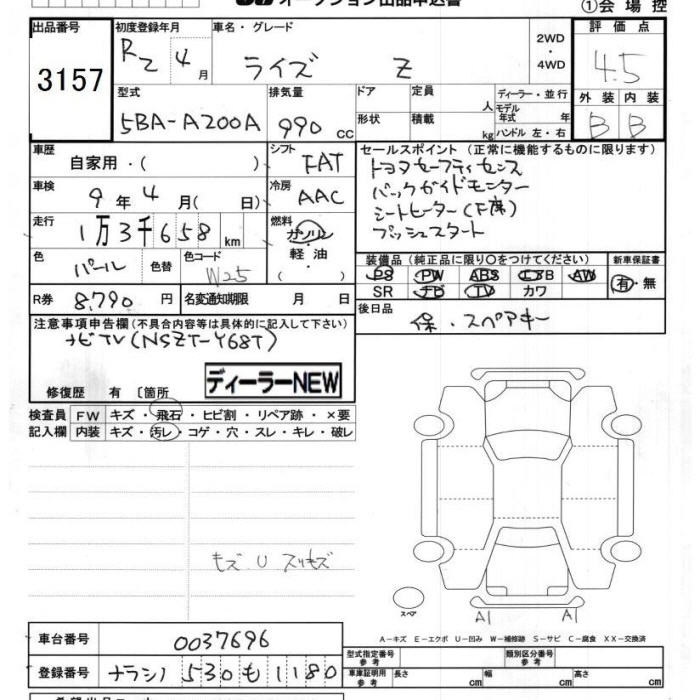 オークション出品申込書
①会場控
出品番号
3157
初度登録年月
R2 4月
車名・グレード
ライズ Z
2WD
・
4WD
評価点
4.5
外装 内装
B B
型式
5BA-A200A
排気量
990 cc
ドア
形状
定員 人
積載 kg
ディーラー・並行
モデル年式 年
ハンドル 左・右
車歴
自家用・( )
シフト
FAT
車検
9年4月( 日)
冷房
AAC
走行
1万3千658km
燃料
ガソリン
軽・油
・( )
色
パール
色替
色コード
W25
R券
8,790円
名変通知期限 月 日
セールスポイント(正常に機能するものに限ります)
トヨタセーフティセンス
バックガイドモニター
シートヒーター(F席)
プッシュスタート
装備品(純正品に限り○をつけてください)
PS PW ABS エアB AW
SR ナビ TV カワ
新車保証書
有・無
後日品
保・スペアキー
注意事項申告欄(不具合内容等は具体的に記入して下さい)
ナビTV(NSZT-Y68T)
ディーラーNEW
修復歴 有 〔箇所
検査員記入欄
FW キズ・飛石・ヒビ割・リペア跡・×要
内装 キズ・汚レ・コゲ・穴・スレ・キレ・破レ
キズ U スリキズ
スペア
A1 A1
A-キズ E-エクボ U-凹み W-補修跡 S-サビ C-腐食 XX-交換済
車台番号
0037696
登録番号
ナラシノ 530 も 1180
型式指定番号 参考
類別区分番号 参考
車庫証明用 参考
長さ cm
幅 cm
高さ cm